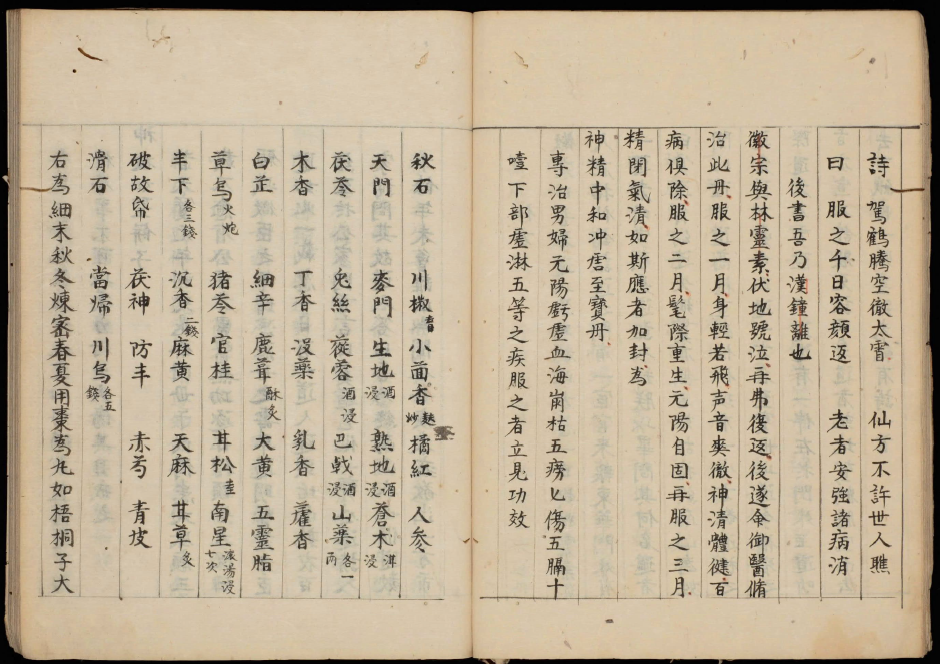 詩 駕鶴騰空徹太霄 仙方不許世人瞧
曰 服之千日容顔返 老者安強諸病消
後書吾乃漢鐘離也
徽宗與林靈素伏地號泣再弗後返後遂命御醫脩
治此丹服之一月身輕若飛声音爽徹神清體健百
病俱除服之二月髦際重生元陽自固再服之三月
精閉氣清如斯應者加封為
神精中和冲虛至寶丹
專治男婦元陽虧虛血海崩枯五癆七傷五膈十
噎下部虛淋五等之疾服之者立見功效
秋石 川椒 小茴香麩炒 橘紅 人參
天門 麥門 生地酒浸 熟地酒浸 蒼术泔浸
茯苓 兔絲 蓯蓉酒浸 巴戟酒浸 山藥各一兩
木香 丁香 沒藥 乳香 藿香
白芷 細辛 鹿茸酥炙 大黄 五靈脂
草烏火炮 猪苓 官桂 甘松 南星滾湯浸七次
半下各三錢 沉香二錢 麻黄 天麻 甘草炙
破故帋 茯神 防丰 赤芍 青皮
滑石 當歸 川烏各五錢
右為細末秋冬煉蜜春夏用棗為丸如梧桐子大